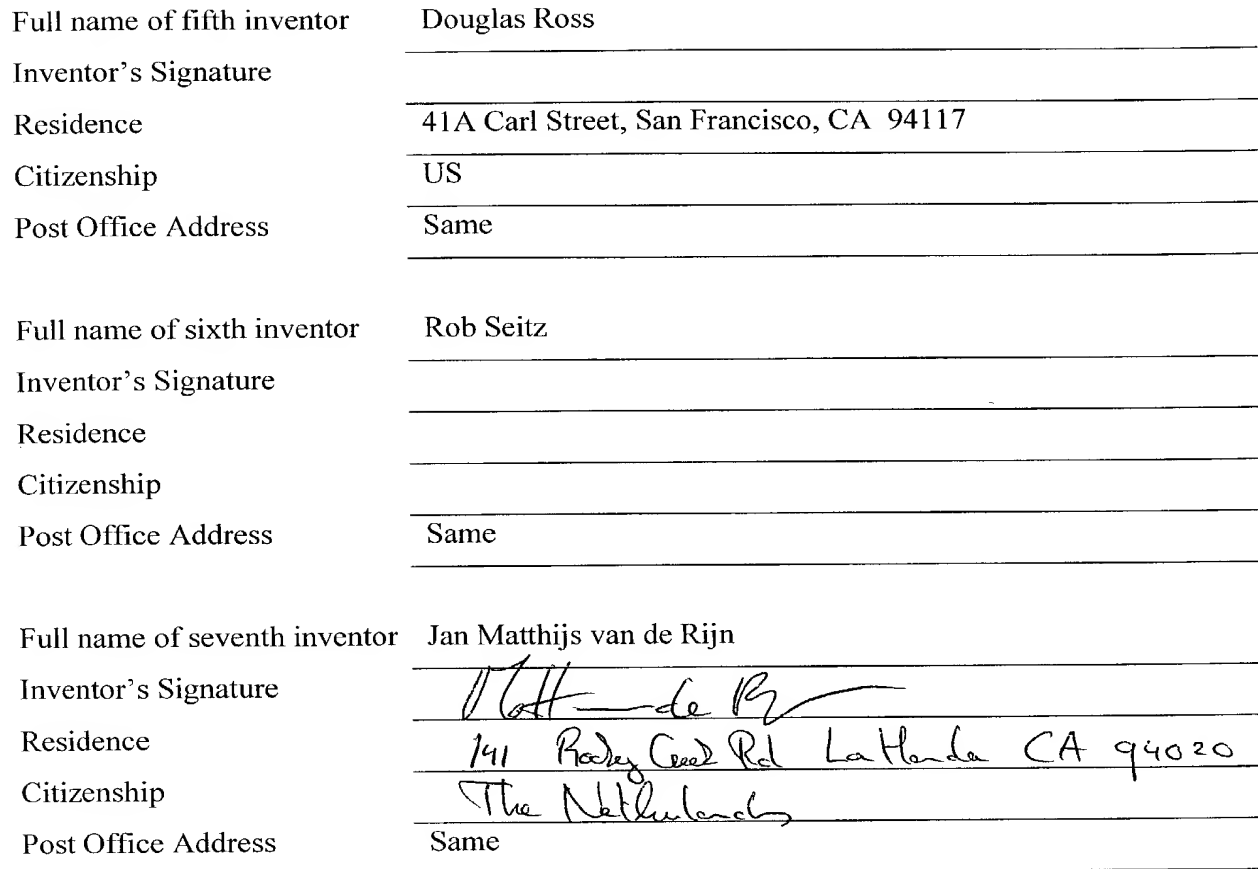 Full name of fifth inventor Douglas Ross
Inventor's Signature
Residence 41A Carl Street, San Francisco, CA 94117
Citizenship US
Post Office Address Same
Full name of sixth inventor Rob Seitz
Inventor's Signature
Residence
Citizenship
Post Office Address Same
Full name of seventh inventor Jan Matthijs van de Rijn
Inventor's Signature
Residence 141 Creek Rd La Honda CA 94020
Citizenship The Netherlands
Post Office Address Same